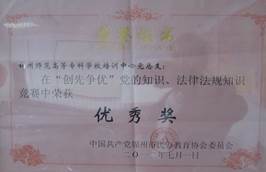 荣誉证书
师范高等专科学校培训中心
在“创先争优”党的知识、法律法规知识
竞赛中荣获
优秀奖
中国共产党 教育协会委员会
二〇一 年七月一日